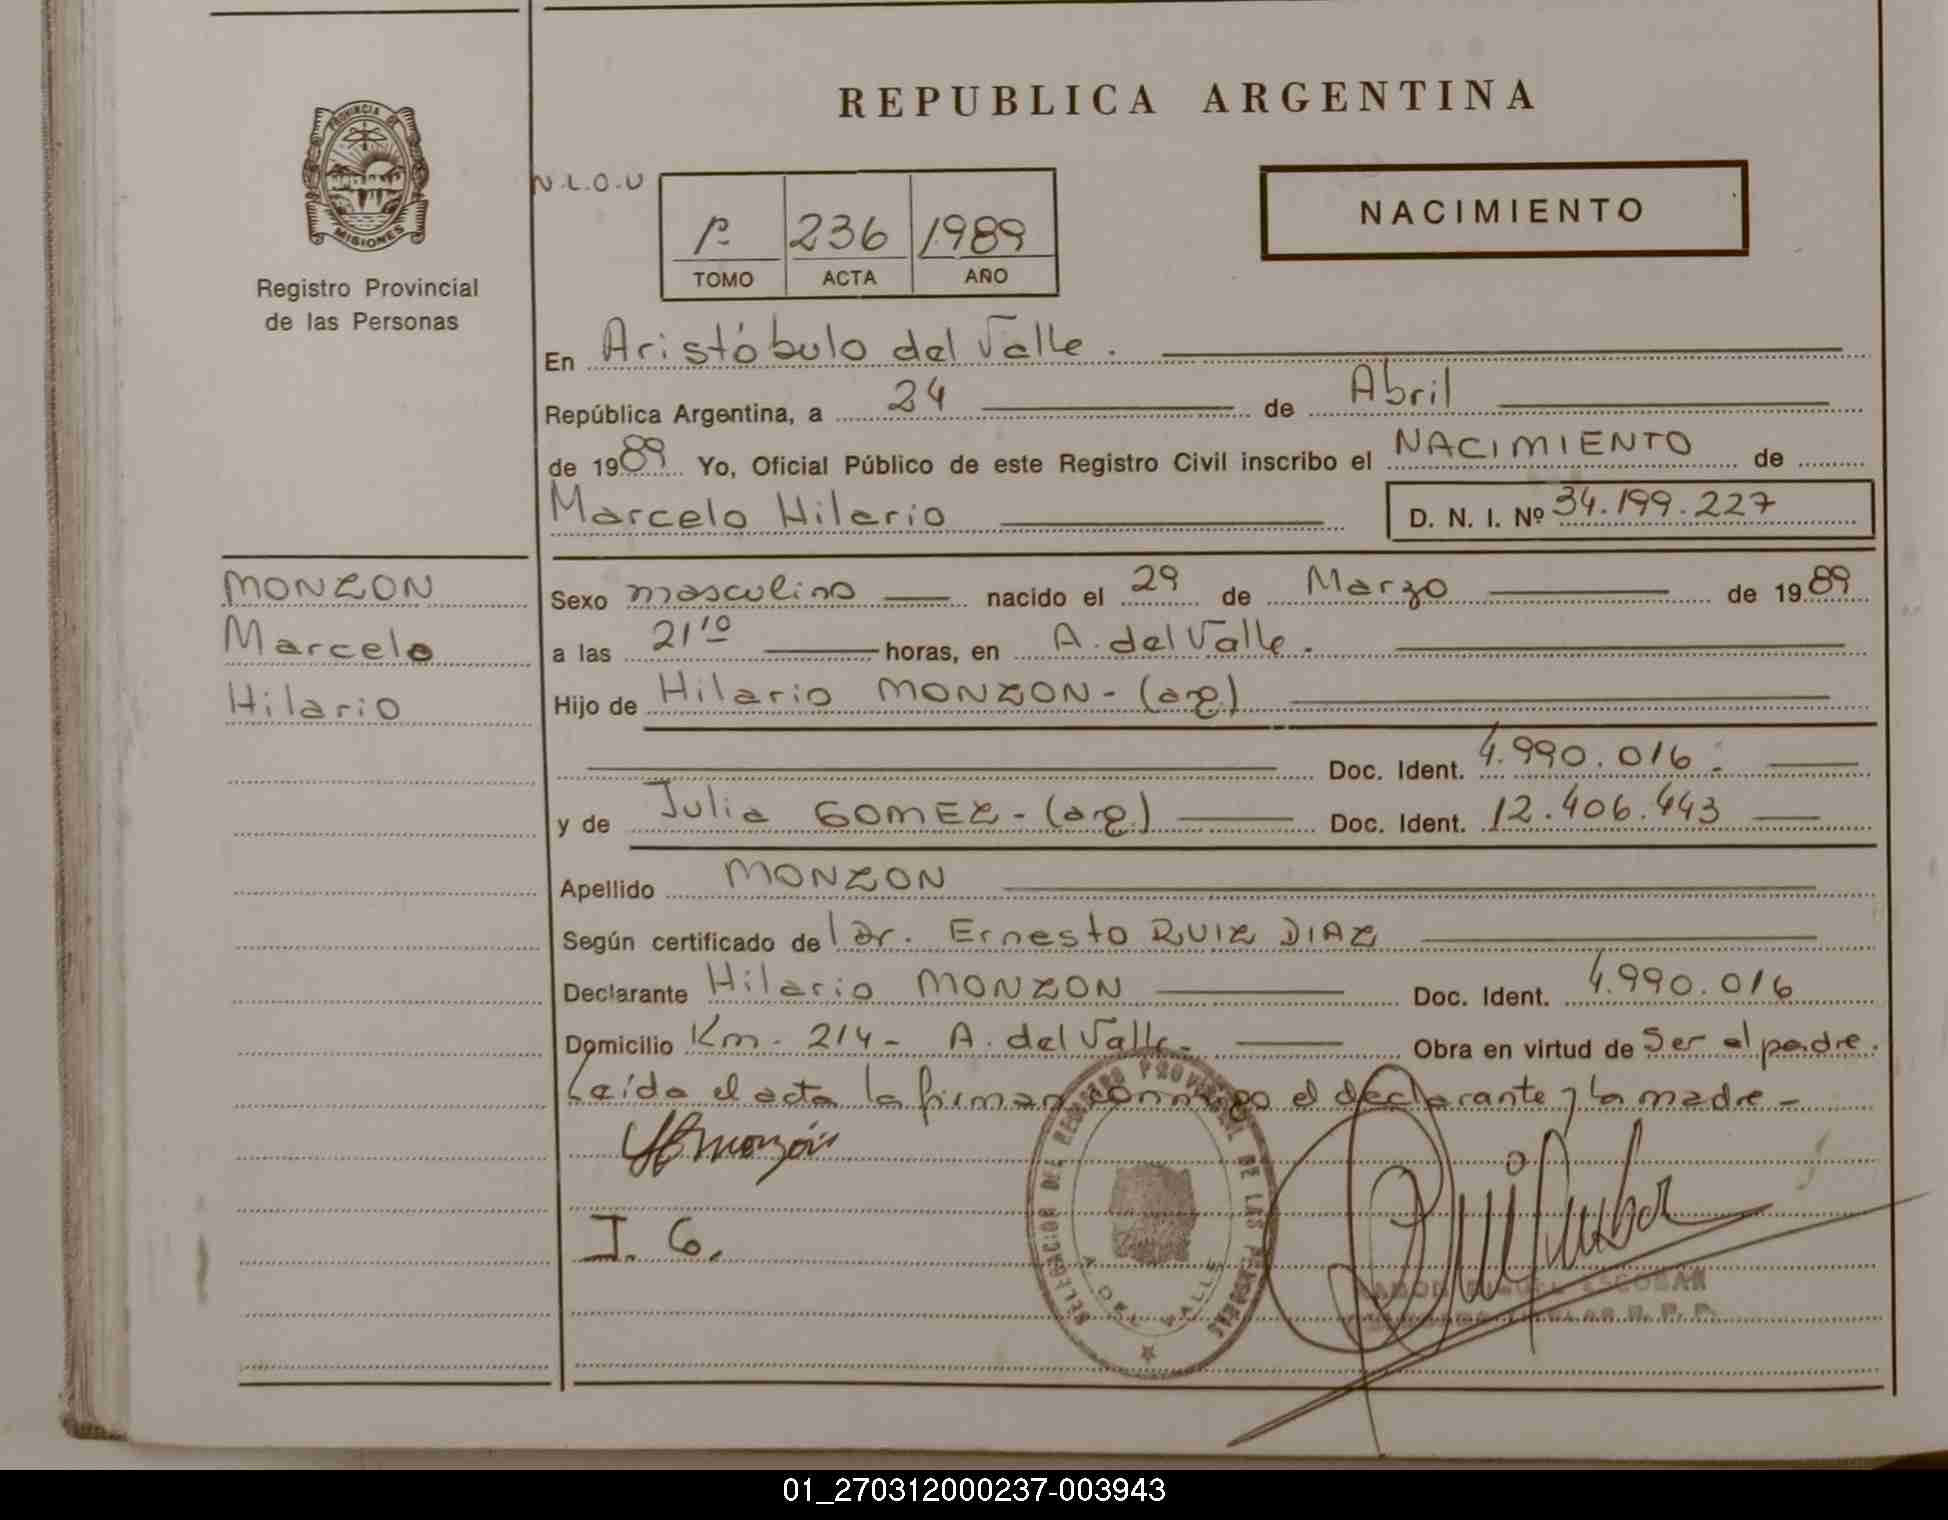 REPUBLICA ARGENTINA
PROVINCIA DE
MISIONES
Registro Provincial
de las Personas
N.L.O.U
1º 236 1989
TOMO ACTA AÑO
NACIMIENTO
En Aristóbulo del Valle.
República Argentina, a 24 de Abril
de 1989 Yo, Oficial Público de este Registro Civil inscribo el NACIMIENTO de
Marcelo Hilario D. N. I. Nº 34.199.227
MONZON
Marcelo
Hilario
Sexo masculino nacido el 29 de Marzo de 1989
a las 21'10 horas, en A. del Valle.
Hijo de Hilario MONZON - (arg.)
Doc. Ident. 4.990.016
y de Julia GOMEZ - (arg.) Doc. Ident. 12.406.443
Apellido MONZON
Según certificado del dr. Ernesto RUIZ DIAZ
Declarante Hilario MONZON Doc. Ident. 4.990.016
Domicilio Km - 214 - A. del Valle - Obra en virtud de Ser el padre.
Leída el acta la firman conmigo el declarante y la madre -
H Monzón
J. G.
DELEGACION DEL REGISTRO PROVINCIAL DE LAS PERSONAS
A. DEL VALLE
ESCOBAR
01_270312000237-003943